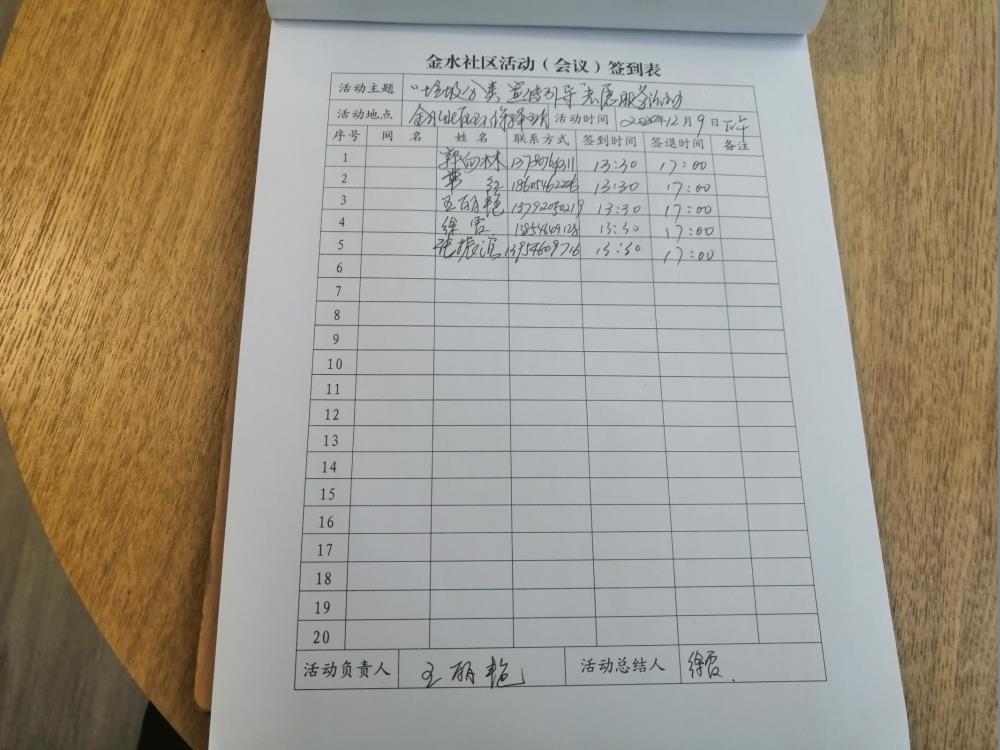 金水社区活动（会议）签到表
活动主题 "垃圾分类宣传引导"志愿服务活动
活动地点 金水 活动时间 2020年12月9日下午
序号 网名 姓名 联系方式 签到时间 签退时间 备注
1 郭 林 13:30 17:00
2 18605462206 13:30 17:00
3 王丽艳 13792050219 13:30 17:00
4 徐霞 13:30 17:00
5 张振滨 13954609716 13:30 17:00
6
7
8
9
10
11
12
13
14
15
16
17
18
19
20
活动负责人 王丽艳 活动总结人 徐霞.